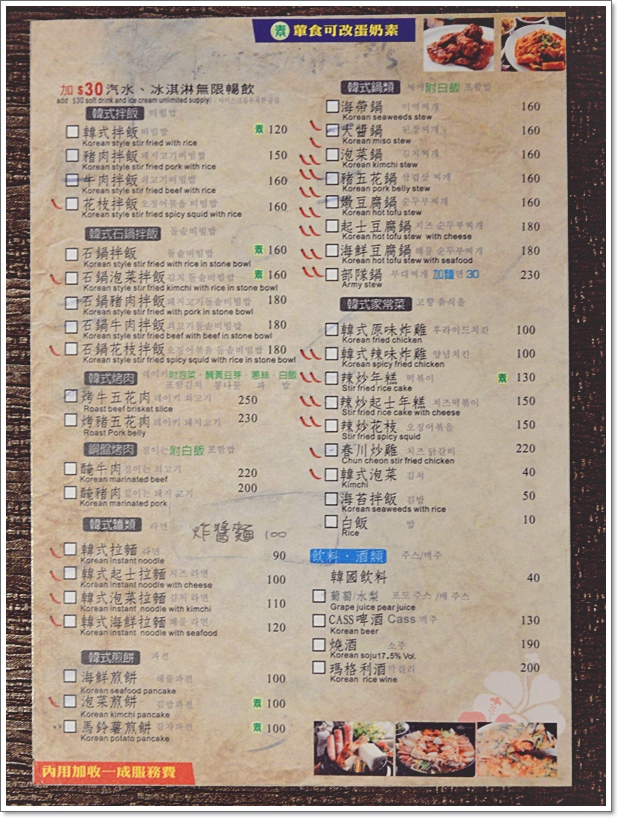 素 葷食可改蛋奶素
加 $30 汽水、冰淇淋無限暢飲
add $30 soft drink and ice cream unlimited supply
韓式拌飯 비빔밥
韓式拌飯 비빔밥 素 120
Korean style stir fried with rice
豬肉拌飯 돼지고기비빔밥 150
Korean style stir fried pork with rice
牛肉拌飯 쇠고기비빔밥 160
Korean style stir fried beef with rice
花枝拌飯 오징어볶음 비빔밥 160
Korean style stir fried spicy squid with rice
韓式石鍋拌飯 돌솥비빔밥
石鍋拌飯 돌솥비빔밥 素 160
Korean style stir fried with rice in stone bowl
石鍋泡菜拌飯 김치 돌솥비빔밥 素 160
Korean style stir fried kimchi with rice in stone bowl
石鍋豬肉拌飯 돼지고기돌솥비빔밥 180
Korean style stir fried with pork in stone bowl
石鍋牛肉拌飯 쇠고기돌솥비빔밥 180
Korean style stir fried beef with beef in stone bowl
石鍋花枝拌飯 오징어볶음 돌솥비빔밥 180
Korean style stir fried spicy squid with rice in stone bowl
韓式烤肉 附泡菜、醃黃豆芽、蔥絲、白飯
포함김치 콩나물 파 밥
烤牛五花肉 쇠고기 250
Roast beef brisket slice
烤豬五花肉 돼지고기 230
Roast Pork belly
銅盤烤肉 附白飯 포함밥
醃牛肉 쇠고기 220
Korean marinated beef
醃豬肉 돼지고기 200
Korean marinated pork
韓式麵類 라면
炸醬麵 100
韓式拉麵 라면 90
Korean instant noodle
韓式起士拉麵 치즈 라면 100
Korean instant noodle with cheese
韓式泡菜拉麵 김치 라면 110
Korean instant noodle with kimchi
韓式海鮮拉麵 해물 라면 120
Korean instant noodle with seafood
韓式煎餅 파전
海鮮煎餅 해물파전 100
Korean seafood pancake
泡菜煎餅 김치파전 素 100
Korean kimchi pancake
馬鈴薯煎餅 감자파전 素 100
Korean potato pancake
內用加收一成服務費
韓式鍋類 찌개 附白飯 포함밥
海帶鍋 미역찌개 160
Korean seaweeds stew
大醬鍋 된장찌개 160
Korean miso stew
泡菜鍋 김치찌개 160
Korean kimchi stew
豬五花鍋 삼겹살 찌개 160
Korean pork belly stew
嫩豆腐鍋 순두부찌개 160
Korean hot tofu stew
起士豆腐鍋 치즈 순두부찌개 180
Korean hot tofu stew with cheese
海鮮豆腐鍋 해물 순두부찌개 180
Korean hot tofu stew with seafood
部隊鍋 부대찌개 加麵면 30 230
Army stew
韓式家常菜 고향 음식을
韓式原味炸雞 후라이드치킨 100
Korean fried chicken
韓式辣味炸雞 양념치킨 100
Korean spicy fried chicken
辣炒年糕 떡볶이 素 130
Stir fried rice cake
辣炒起士年糕 치즈떡볶이 150
Stir fried rice cake with cheese
辣炒花枝 오징어볶음 150
Stir fried spicy squid
春川炒雞 치즈 닭갈비 220
Chun cheon stir fried chicken
韓式泡菜 김치 40
Kimchi
海苔拌飯 김밥 50
Korean seaweeds with rice
白飯 밥 10
Rice
飲料・酒類 주스/맥주
韓國飲料 40
葡萄/水梨 포도 주스 /배 주스
Grape juice pear juice
CASS啤酒 Cass 맥주 130
Korean beer
燒酒 소주 190
Korean soju17.5% Vol.
瑪格利酒 막걸리 200
Korean rice wine